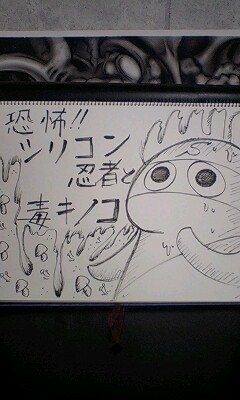 恐怖!!
シリコン
忍者と
毒キノコ
S